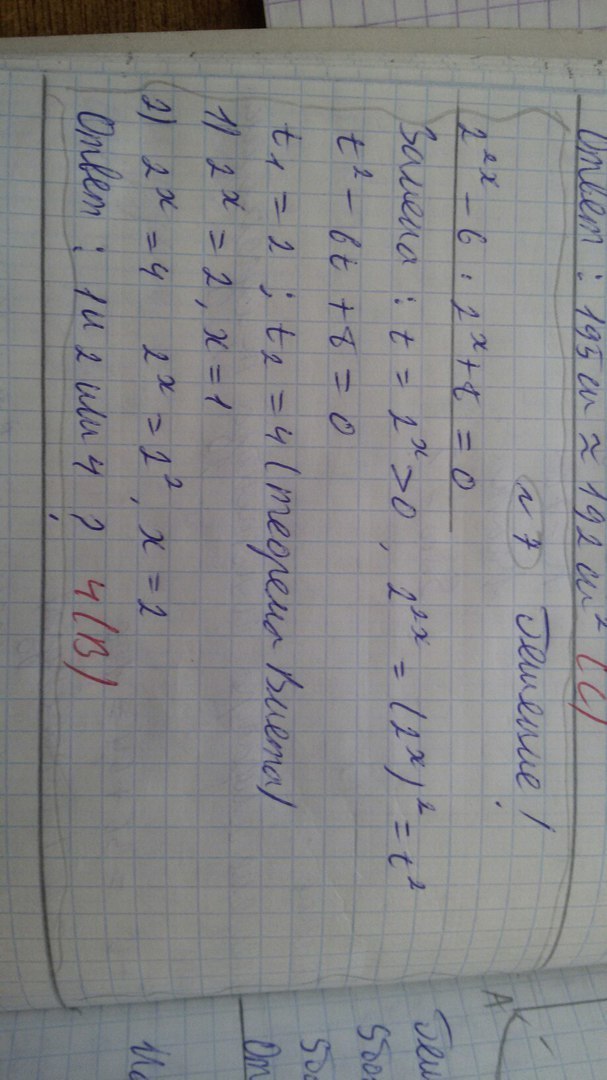 Ответ: 195 см ≈ 192 см² (С)
№ 7 Решение!
2²ˣ - 6 · 2ˣ + 8 = 0
Замена: t = 2ˣ > 0, 2²ˣ = (2ˣ)² = t²
t² - 6t + 8 = 0
t₁ = 2; t₂ = 4 (теорема Виета)
1) 2ˣ = 2, x = 1
2) 2ˣ = 4 2ˣ = 2², x = 2
Ответ: 1 и 2 или 4 ? 4 (В)
A